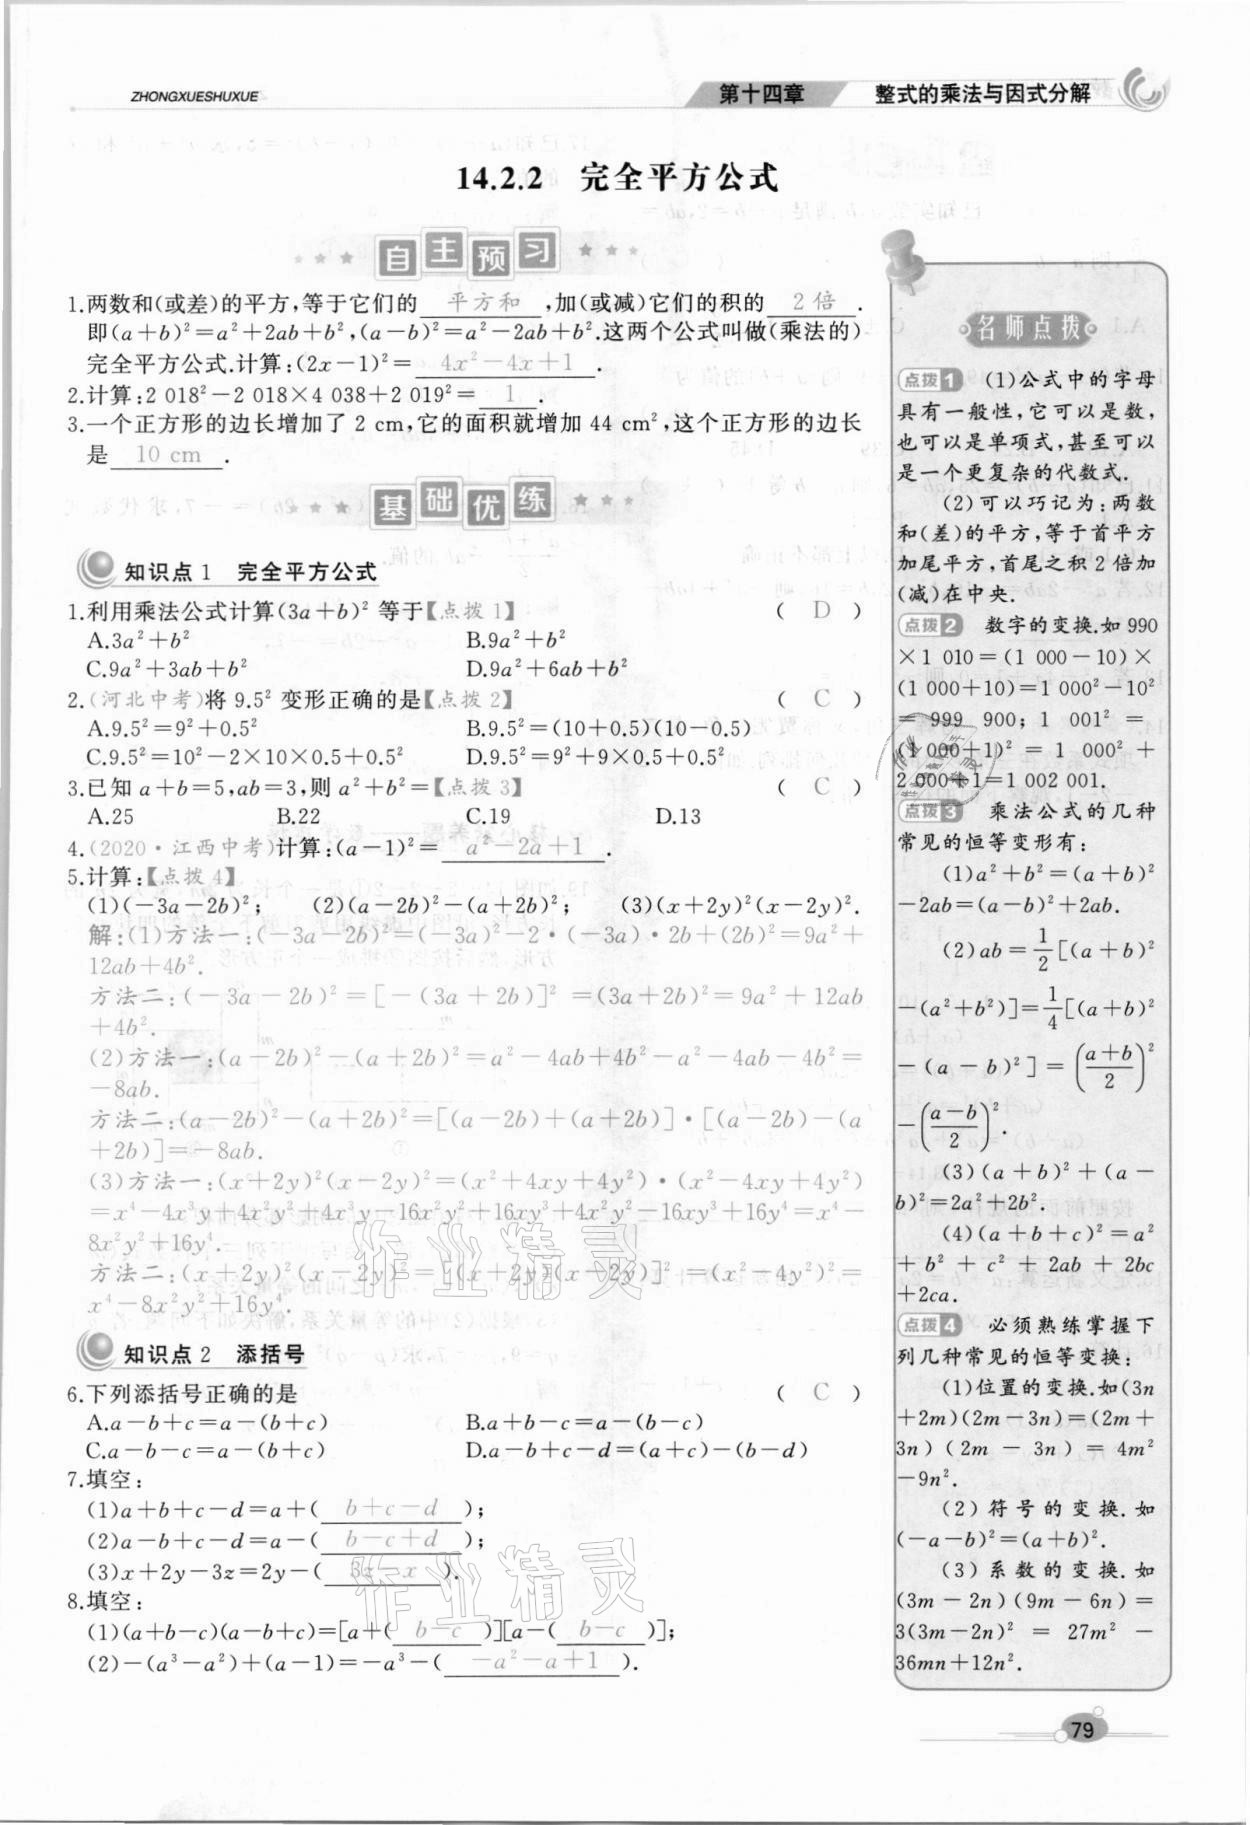 ZHONGXUESHUXUE
第十四章 整式的乘法与因式分解
14.2.2 完全平方公式
自主预习
1.两数和(或差)的平方,等于它们的 平方和 ,加(或减)它们的积的 2倍 .
即(a+b)²=a²+2ab+b²,(a-b)²=a²-2ab+b².这两个公式叫做(乘法的)
完全平方公式.计算:(2x-1)²= 4x²-4x+1 .
2.计算:2 018²-2 018×4 038+2 019²= 1 .
3.一个正方形的边长增加了 2 cm,它的面积就增加 44 cm²,这个正方形的边长
是 10 cm .
基础优练
知识点1 完全平方公式
1.利用乘法公式计算(3a+b)² 等于【点拨1】 ( D )
A.3a²+b² B.9a²+b²
C.9a²+3ab+b² D.9a²+6ab+b²
2.(河北中考)将 9.5² 变形正确的是【点拨2】 ( C )
A.9.5²=9²+0.5² B.9.5²=(10+0.5)(10-0.5)
C.9.5²=10²-2×10×0.5+0.5² D.9.5²=9²+9×0.5+0.5²
3.已知 a+b=5,ab=3,则 a²+b²=【点拨3】 ( C )
A.25 B.22 C.19 D.13
4.(2020·江西中考)计算:(a-1)²= a²-2a+1 .
5.计算:【点拨4】
(1)(-3a-2b)²; (2)(a-2b)²-(a+2b)²; (3)(x+2y)²(x-2y)².
解:(1)方法一:(-3a-2b)²=(-3a)²-2·(-3a)·2b+(2b)²=9a²+
12ab+4b².
方法二:(-3a-2b)²=[-(3a+2b)]²=(3a+2b)²=9a²+12ab
+4b².
(2)方法一:(a-2b)²-(a+2b)²=a²-4ab+4b²-a²-4ab-4b²=
-8ab.
方法二:(a-2b)²-(a+2b)²=[(a-2b)+(a+2b)]·[(a-2b)-(a
+2b)]=-8ab.
(3)方法一:(x+2y)²(x-2y)²=(x²+4xy+4y²)·(x²-4xy+4y²)
=x⁴-4x³y+4x²y²+4x³y-16x²y²+16xy³+4x²y²-16xy³+16y⁴=x⁴-
8x²y²+16y⁴.
方法二:(x+2y)²(x-2y)²=[(x+2y)(x-2y)]²=(x²-4y²)²=
x⁴-8x²y²+16y⁴.
知识点2 添括号
6.下列添括号正确的是 ( C )
A.a-b+c=a-(b+c) B.a+b-c=a-(b-c)
C.a-b-c=a-(b+c) D.a-b+c-d=(a+c)-(b-d)
7.填空:
(1)a+b+c-d=a+( b+c-d );
(2)a-b+c-d=a-( b-c+d );
(3)x+2y-3z=2y-( 3z-x ).
8.填空:
(1)(a+b-c)(a-b+c)=[a+( b-c )][a-( b-c )];
(2)-(a³-a²)+(a-1)=-a³-( -a²-a+1 ).
名师点拨
点拨1 (1)公式中的字母
具有一般性,它可以是数,
也可以是单项式,甚至可以
是一个更复杂的代数式.
(2)可以巧记为:两数
和(差)的平方,等于首平方
加尾平方,首尾之积2倍加
(减)在中央.
点拨2 数字的变换.如 990
×1 010=(1 000-10)×
(1 000+10)=1 000²-10²
=999 900;1 001²=
(1 000+1)²=1 000²+
2 000+1=1 002 001.
点拨3 乘法公式的几种
常见的恒等变形有:
(1)a²+b²=(a+b)²
-2ab=(a-b)²+2ab.
(2)ab=1/2[(a+b)²
-(a²+b²)]=1/4[(a+b)²
-(a-b)²]=((a+b)/2)²
-((a-b)/2)².
(3)(a+b)²+(a-
b)²=2a²+2b².
(4)(a+b+c)²=a²
+b²+c²+2ab+2bc
+2ca.
点拨4 必须熟练掌握下
列几种常见的恒等变换:
(1)位置的变换.如(3n
+2m)(2m-3n)=(2m+
3n)(2m-3n)=4m²
-9n².
(2)符号的变换.如
(-a-b)²=(a+b)².
(3)系数的变换.如
(3m-2n)(9m-6n)=
3(3m-2n)²=27m²-
36mn+12n².
作业精灵
作业精灵
79